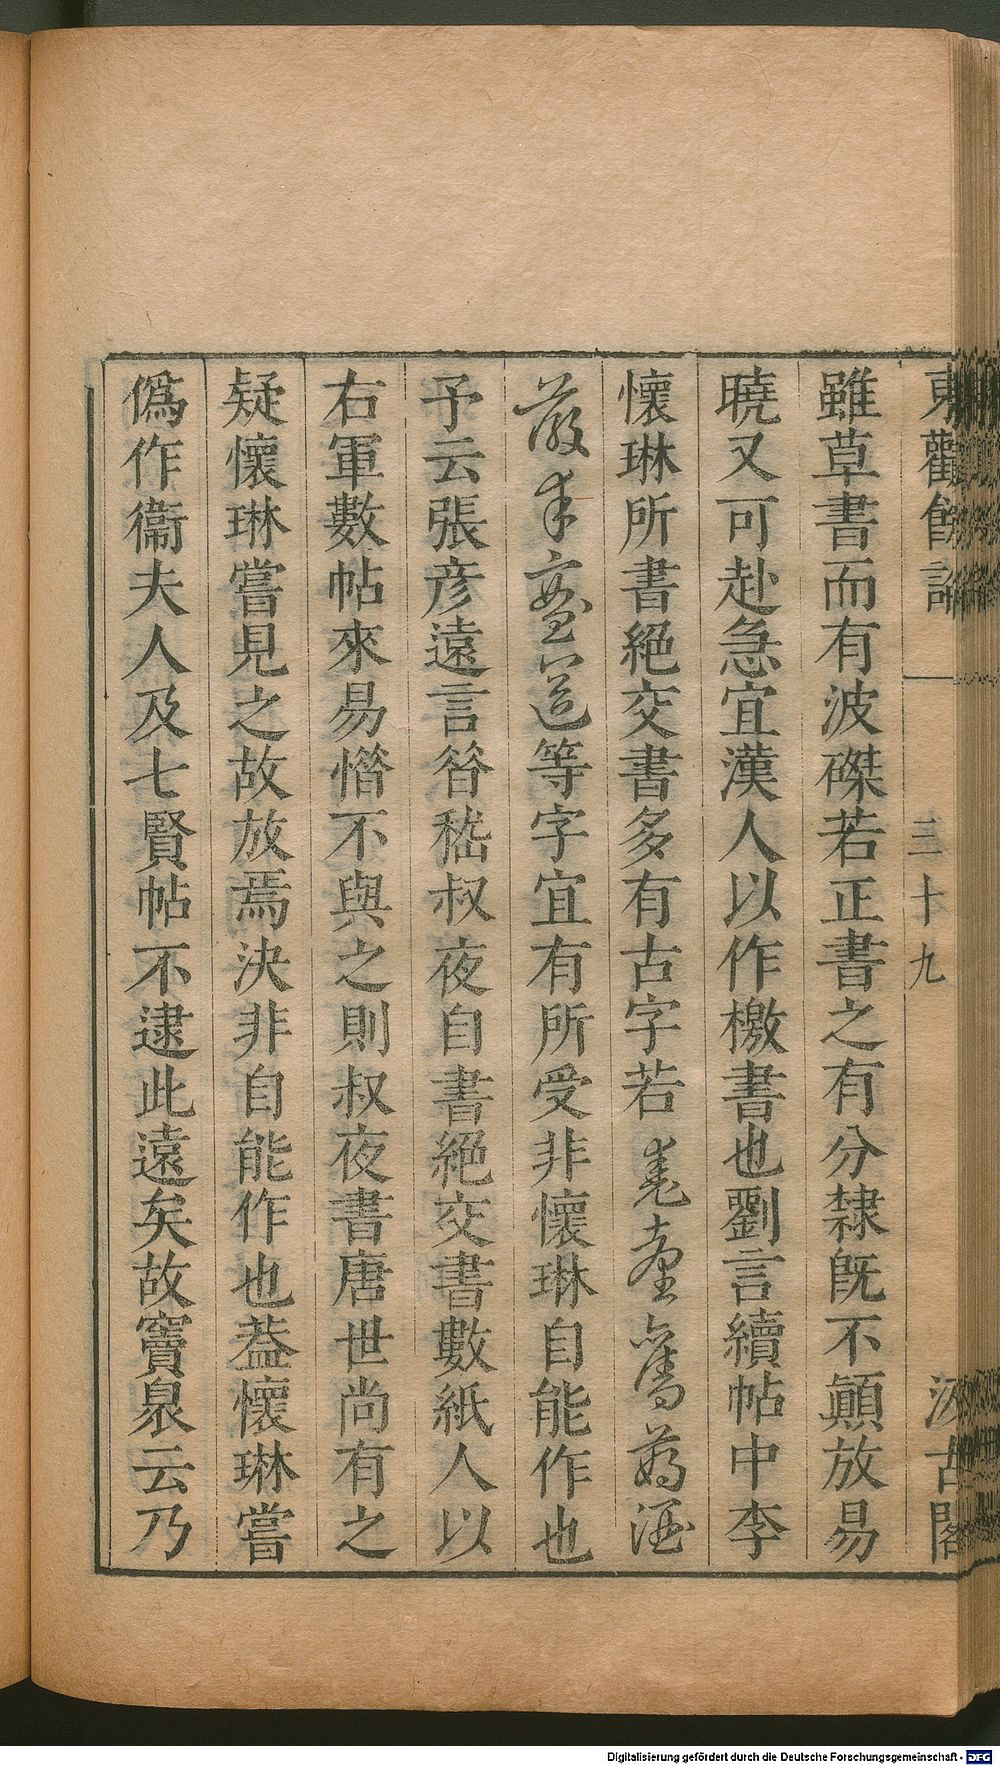 東觀餘論
三十九
汲古閣
雖草書而有波磔若正書之有分隸旣不顚放易
曉又可赴急宜漢人以作檄書也劉言續帖中李
懷琳所書絕交書多有古字若
等字宜有所受非懷琳自能作也
予云張彦遠言㫺嵇叔夜自書絕交書數紙人以
右軍數帖來易惜不與之則叔夜書唐世尚有之
疑懷琳嘗見之故放焉決非自能作也葢懷琳嘗
僞作衞夫人及七賢帖不逮此遠矣故竇臮云乃
Digitalisierung gefördert durch die Deutsche Forschungsgemeinschaft - DFG